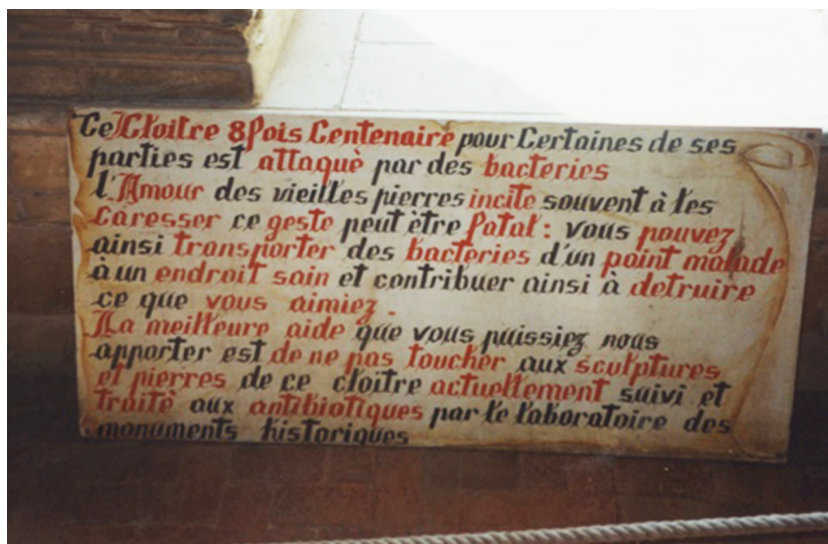 Ce Cloitre 8 fois Centenaire pour Certaines de ses
parties est attaquè par des bacteries
l'Amour des vieilles pierres incite souvent à les
caresser ce geste peut être fatal : vous pouvez
ainsi transporter des bacteries d'un point malade
à un endroit sain et contribuer ainsi à detruire
ce que vous aimiez.
La meilleure aide que vous puissiez nous
apporter est de ne pas toucher aux sculptures
et pierres de ce cloitre actuellement suivi et
traitè aux antibiotiques par le laboratoire des
monuments historiques